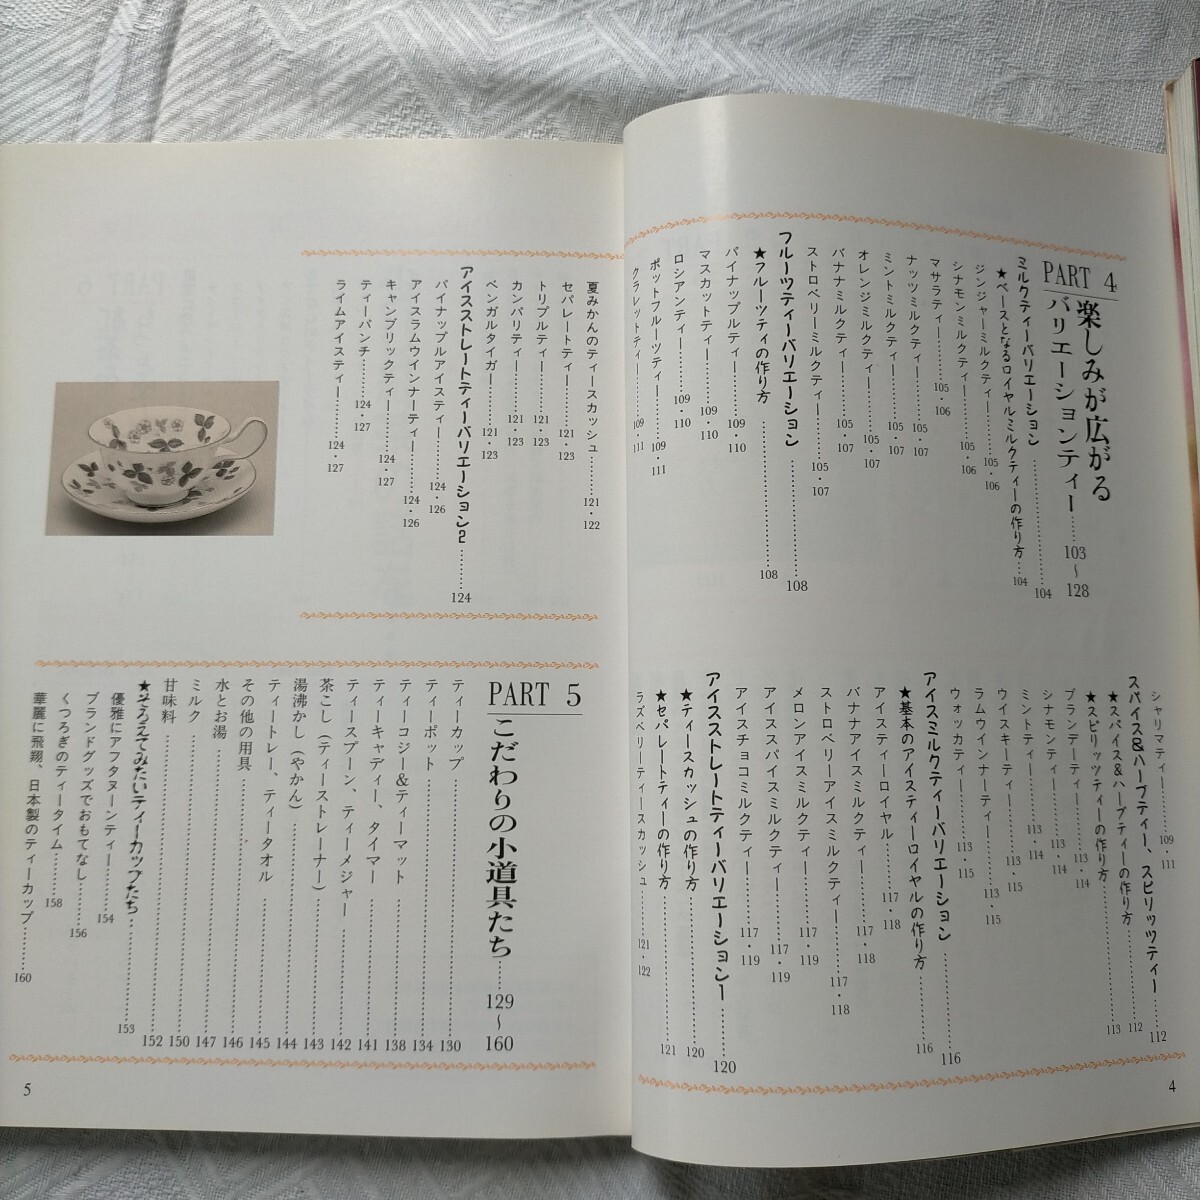 PART 4 楽しみが広がる
バリエーションティー……103～128
ミルクティーバリエーション……104
★ベースとなるロイヤルミルクティーの作り方……104
ジンジャーミルクティー……105・106
シナモンミルクティー……105・106
マサラティー……105・106
ナッツミルクティー……105・107
ミントミルクティー……105・107
オレンジミルクティー……105・107
バナナミルクティー……105・107
ストロベリーミルクティー……105・107
フルーツティーバリエーション……108
★フルーツティの作り方……108
パイナップルティー……109・110
マスカットティー……109・110
ロシアンティー……109・110
ポットフルーツティー……109・111
クラレットティー……109・111
シャリマティー……109・111
スパイス&ハーブティー、スピリッツティー……112
★スパイス&ハーブティーの作り方……112
★スピリッツティーの作り方……113
ブランデーティー……113・114
シナモンティー……113・114
ミントティー……113・114
ウイスキーティー……113・115
ラムウインナーティー……113・115
ウォッカティー……113・115
アイスミルクティーバリエーション……116
★基本のアイスティーロイヤルの作り方……116
アイスティーロイヤル……117・118
バナナアイスミルクティー……117・118
ストロベリーアイスミルクティー……117・118
メロンアイスミルクティー……117・119
アイススパイスミルクティー……117・119
アイスチョコミルクティー……117・119
アイスストレートティーバリエーション1……120
★ティースカッシュの作り方……120
★セパレートティーの作り方……121
ラズベリーティースカッシュ……121・122
4
夏みかんのティースカッシュ……121・122
セパレートティー……121・123
トリプルティー……121・123
カンパリティー……121・123
ベンガルタイガー……121・123
アイスストレートティーバリエーション2……124
パイナップルアイスティー……124・126
アイスラムウインナーティー……124・126
キャンブリックティー……124・127
ティーパンチ……124・127
ライムアイスティー……124・127
PART 5 こだわりの小道具たち……129～160
ティーカップ……130
ティーポット……134
ティーコジー&ティーマット……138
ティーキャディー、タイマー……141
ティースプーン、ティーメジャー……142
茶こし（ティーストレーナー）……143
湯沸かし（やかん）……144
ティートレー、ティータオル……145
その他の用具……146
水とお湯……147
ミルク……150
甘味料……152
★そろえてみたいティーカップたち……153
優雅にアフタヌーンティー……154
ブランドグッズでおもてなし……156
くつろぎのティータイム……158
華麗に飛翔、日本製のティーカップ……160
5